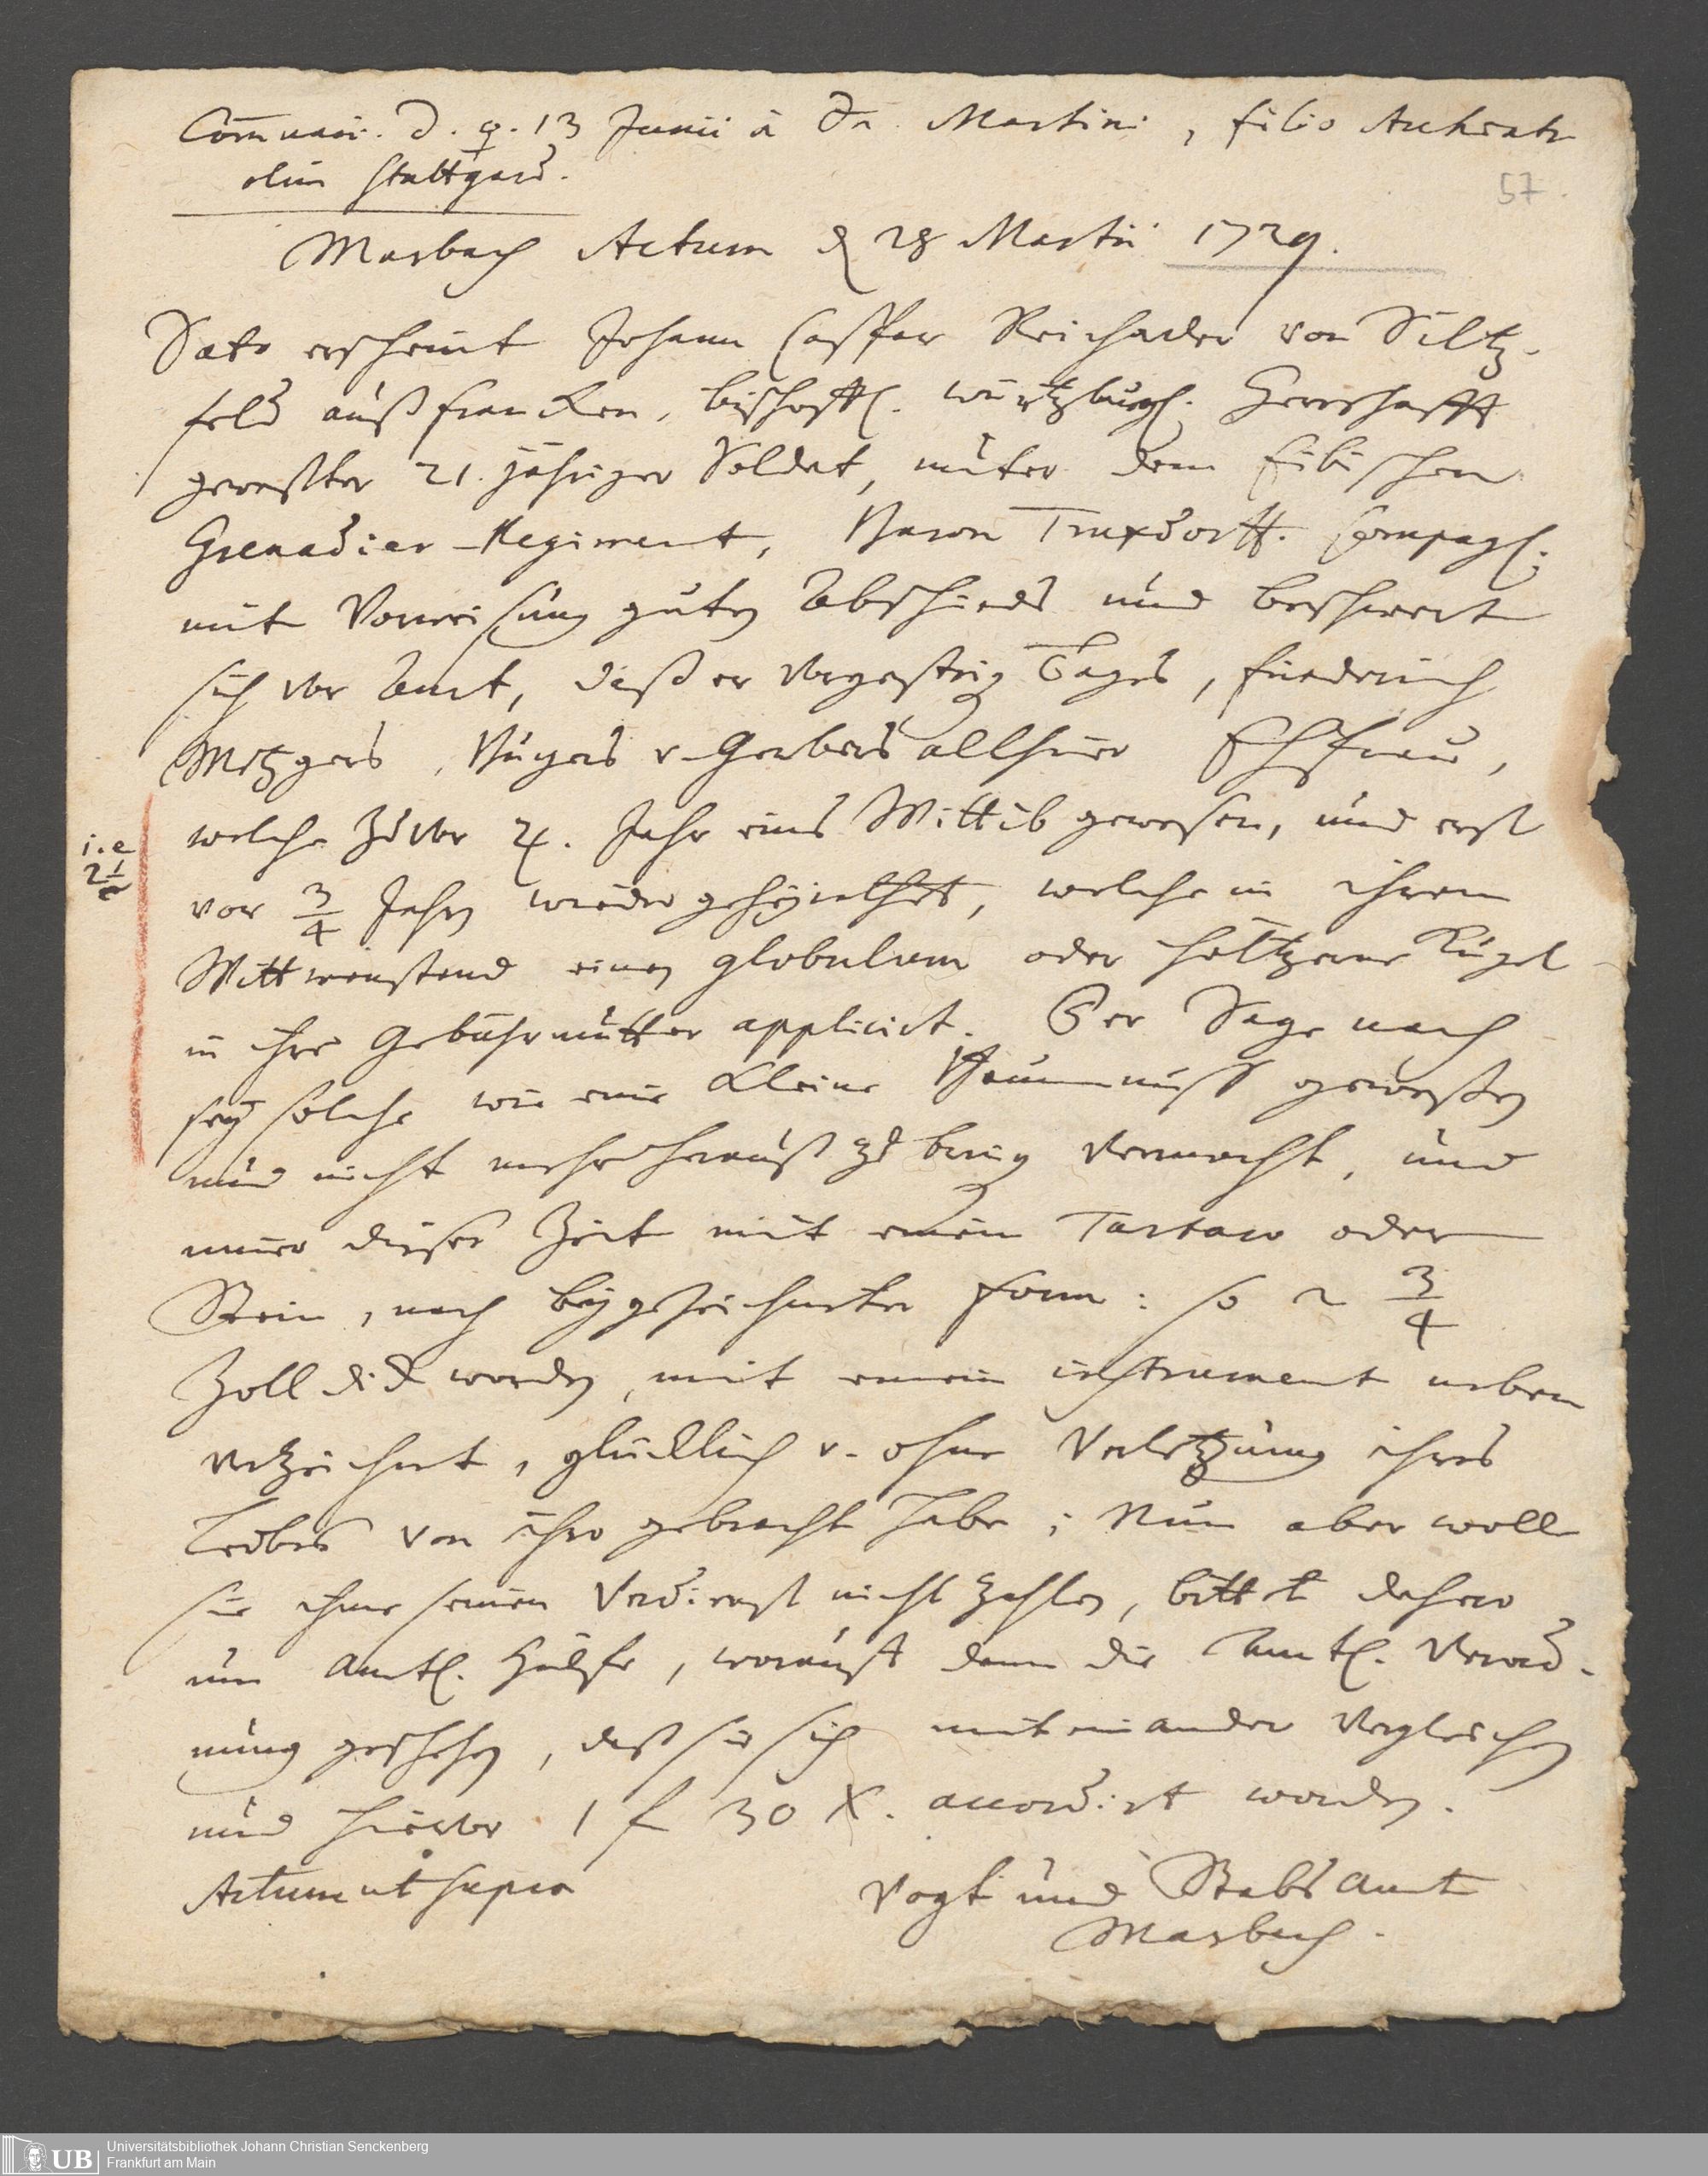 Com̅unic. d. ♀. 13 Junii à Dn. Martini, filio Archiatr.
olim Stuttgard.
57.
Marbach Actum d 28 Martii 1729.
Dato erscheint Johann Casspar Reicharder von Siltz-
feld auß francken, bischoffl. würtzburgl. Herrschafft
geweßter 21. jähriger Soldat, unter dem Eibischen
Grenadier-Regiment, Baron Truxdorff. Compagl.
mit Vorweisung guten Abschieds und beschwert
sich vor Amt, daß er vorgestrig Tages, friederich
Metzgers, Burgers v. Gerbers allhier Ehfrau,
welche zuvor 2½. Jahr eine Wittib gewesen, und erst
i. e
2½
vor 3/4 Jahren wieder geheyrathet, welche in ihrem
Wittwenstand einen globulum oder höltzerne Kugel
in ihre Gebährmutter applicirt. Der Sage nach
sey solche wie eine kleine Baumnuß geweßen
und nicht mehr herauß zu bring vermocht, und
inner dießer Zeit mit einem Tartaro oder
Stein, nach beygezeichneter form: so 2 3/4
Zoll dick worden, mit einem instrument neben
verzeichnet, glücklich v. ohne Verletzung ihres
Leibes von ihro gebracht habe; Nun aber wolle
sie ihme seinen Verdienst nicht zahlen, bittet dahero
um amtl. Hülfe, worauf dann die Amtl. Verord-
nung geschehen, daß sie sich miteinander verglichen
und hievor 1 f 30 X. accordirt worden.
Actum ut supra
Vogt und Stabs Amt
Marbach.
UB
Universitätsbibliothek Johann Christian Senckenberg
Frankfurt am Main